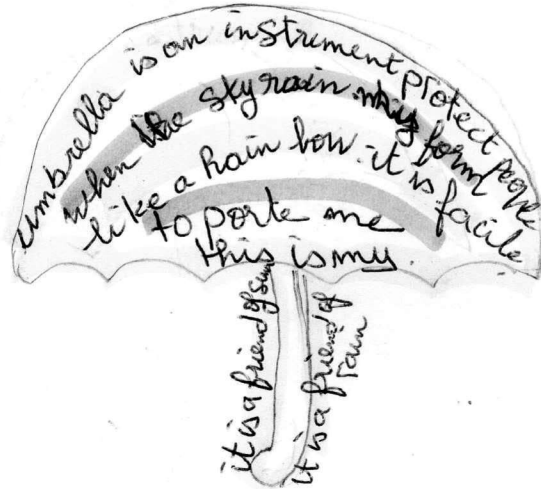 umbrella is an instrument protect people
when the sky rain my form
like a Rain bow. it is facile
to porte me
this is my
it is a friend of sun
it is a friend of
rain